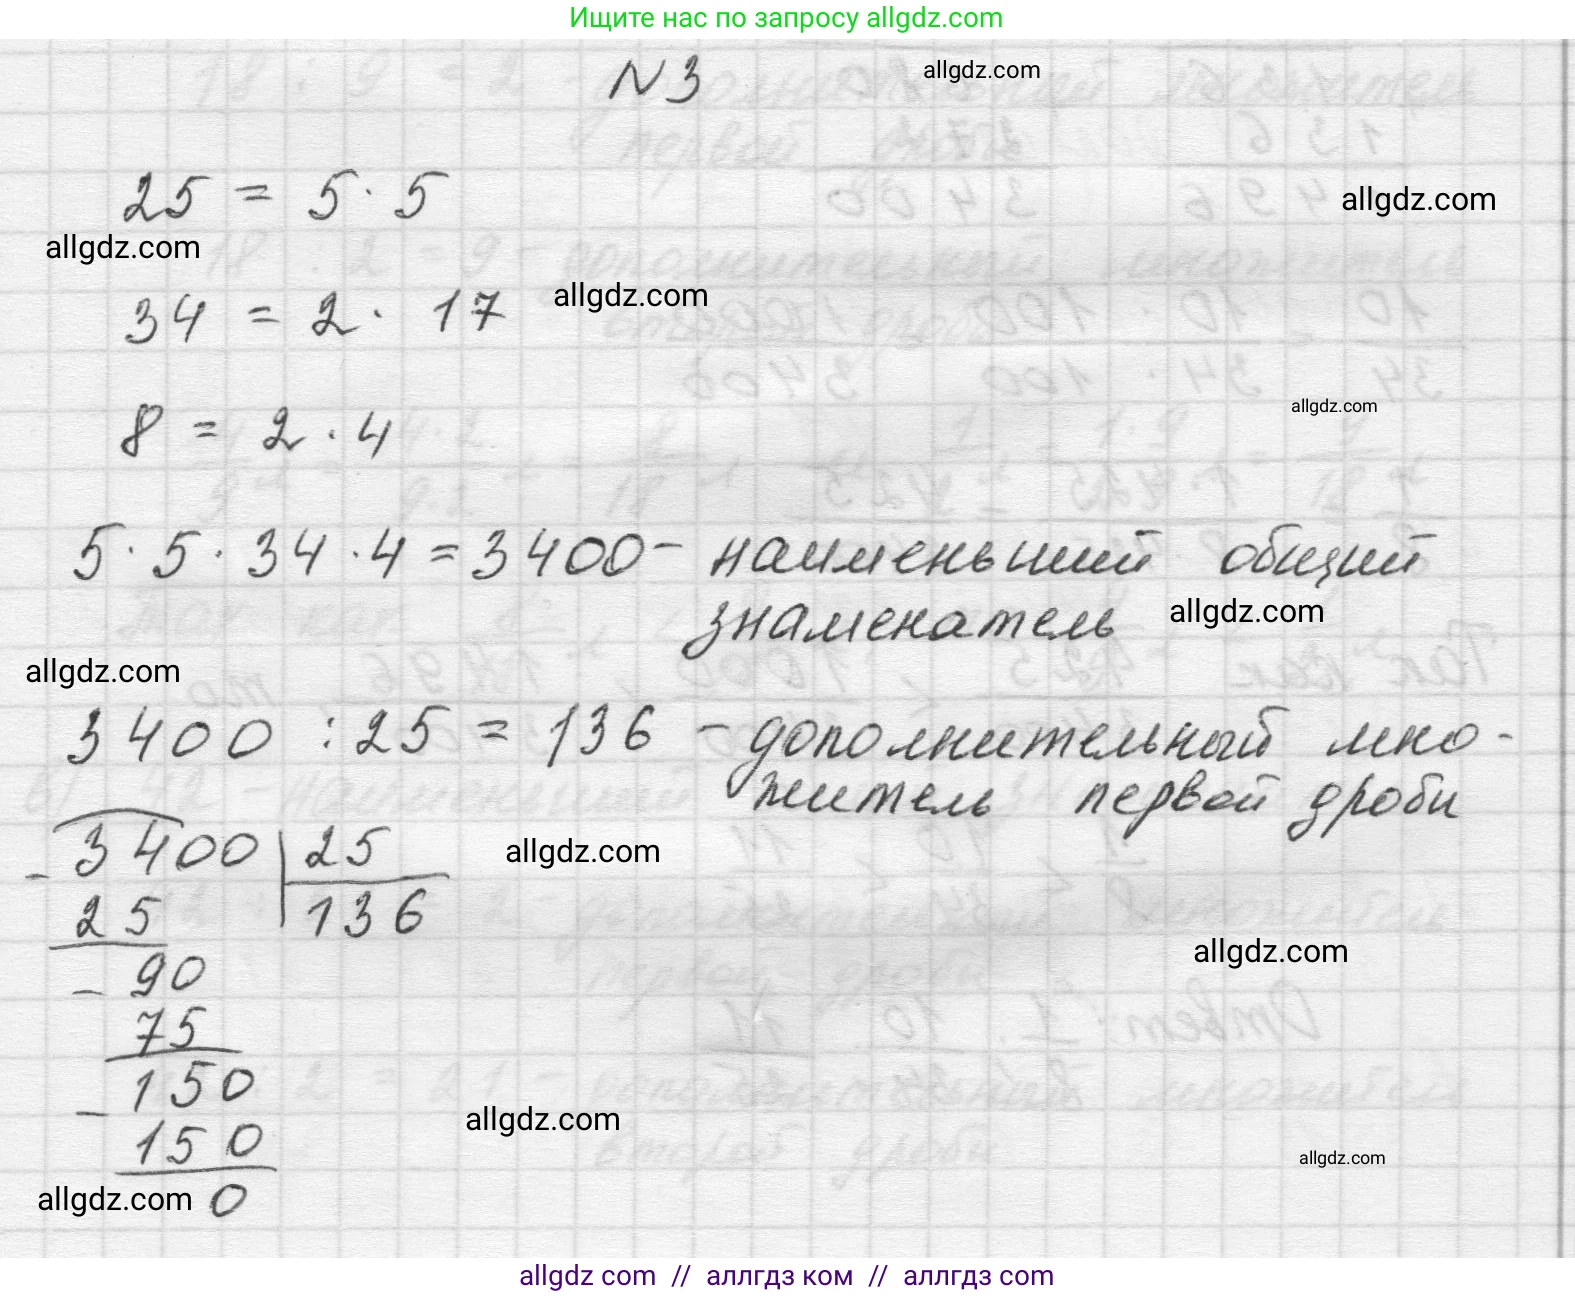 Ищите нас по запросу allgdz.com
N3
allgdz.com
25 = 5 · 5
allgdz.com
allgdz.com
34 = 2 · 17
allgdz.com
8 = 2 · 4
allgdz.com
5 · 5 · 34 · 4 = 3400 - наименьший общий
знаменатель
allgdz.com
allgdz.com
3400 : 25 = 136 - дополнительный мно-
житель первой дроби
- 3400 | 25
allgdz.com
25 136
allgdz.com
- 90
75
- 150
allgdz.com
150
allgdz.com
allgdz.com
0
allgdz com // аллгдз ком // аллгдз com